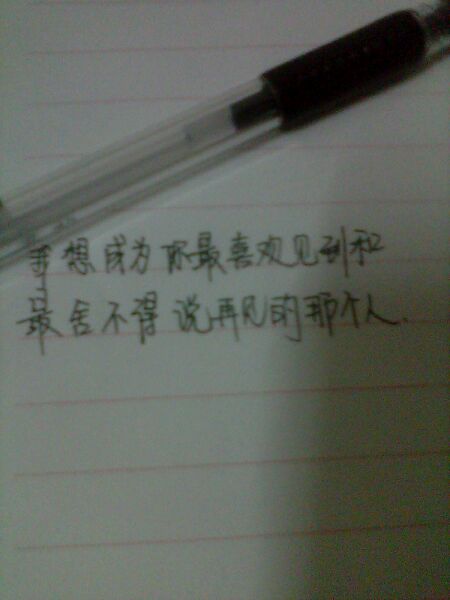 我想成为你最喜欢见到和
最舍不得说再见的那个人.